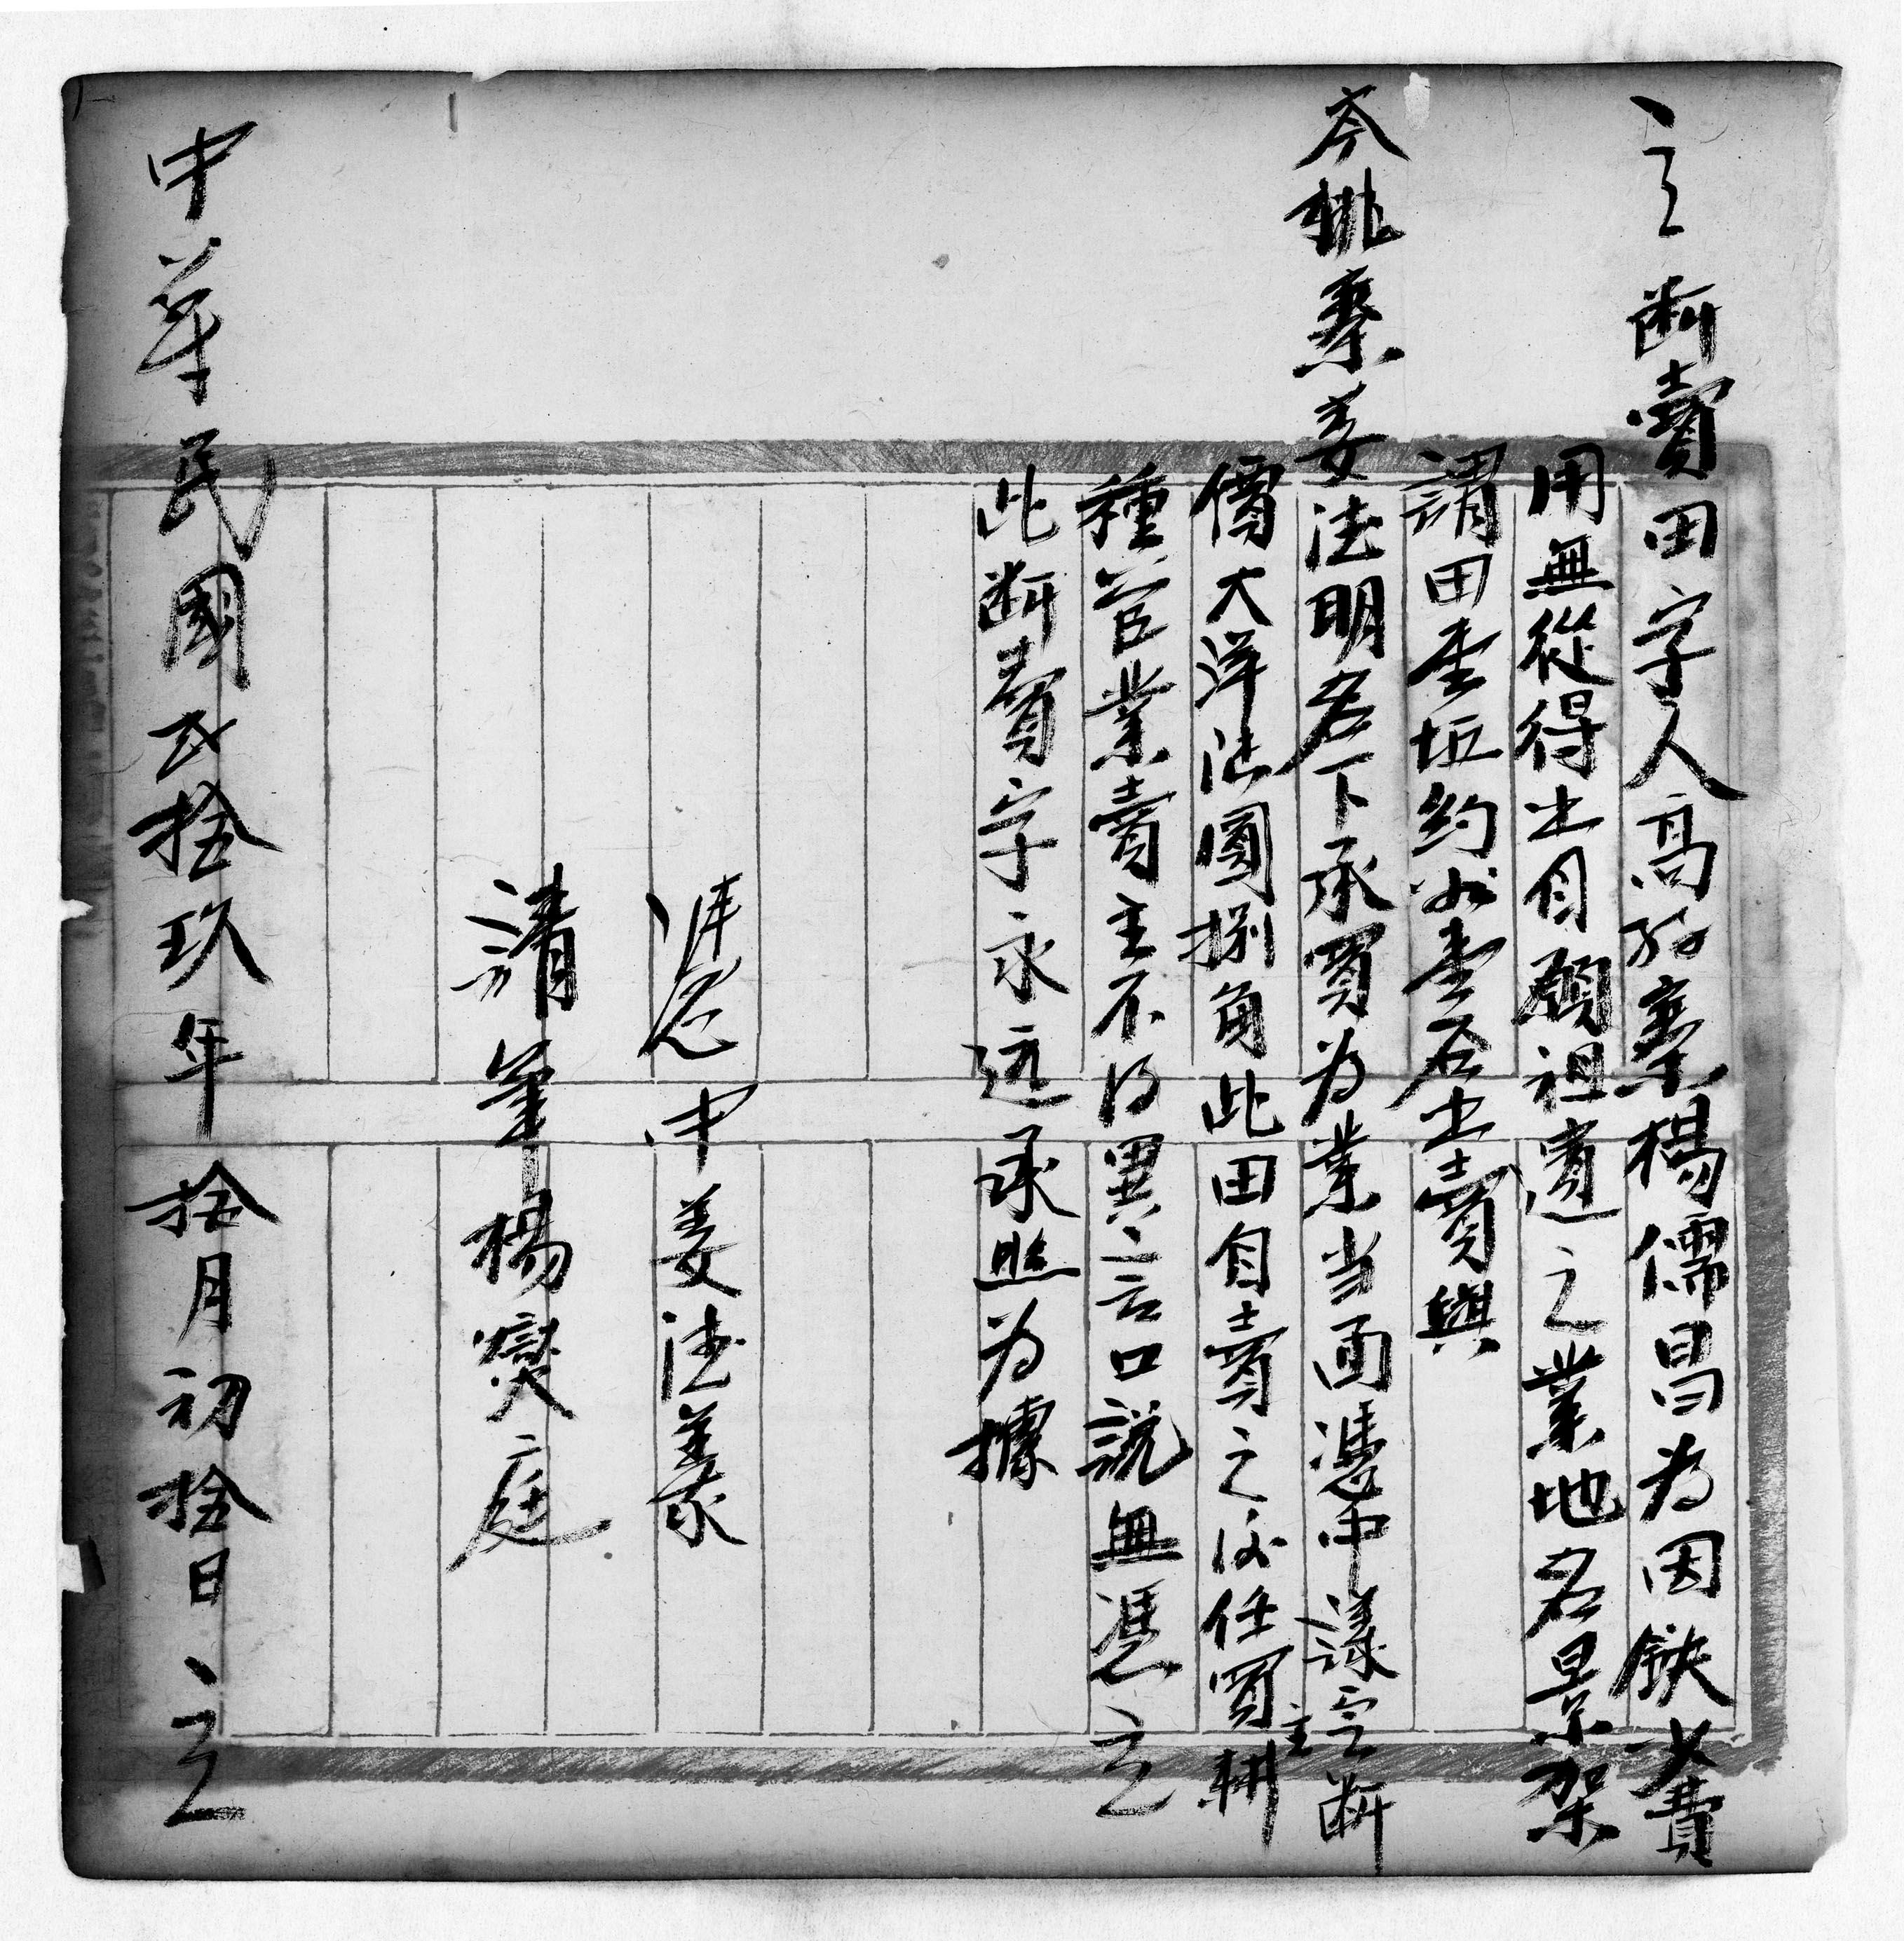 立断賣田字人高孖寨楊儒昌為因缺少費
用無從得出自願祖遺之業地名景架
謂田壹坵約出壹石出賣與
岑梱寨姜法明名下承買為業当面憑中議定断
價大洋陆圓捌角此田自賣之後任買主耕
種管業賣主不得異言口説無憑立
此断賣字永远承照為據
凭中姜法義
請筆楊燮庭
中華民國貳拾玖年拾月初拾日立